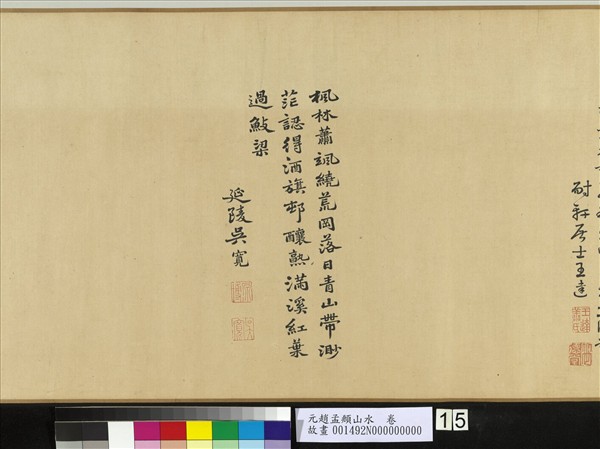 耐軒居士王達
楓林蕭颯繞荒岡落日青山帶渺
茫認得酒旗邨釀熟滿溪紅葉
過魰梁
延陵吳寬
元趙孟頫山水　卷
故畫 001492N000000000
15